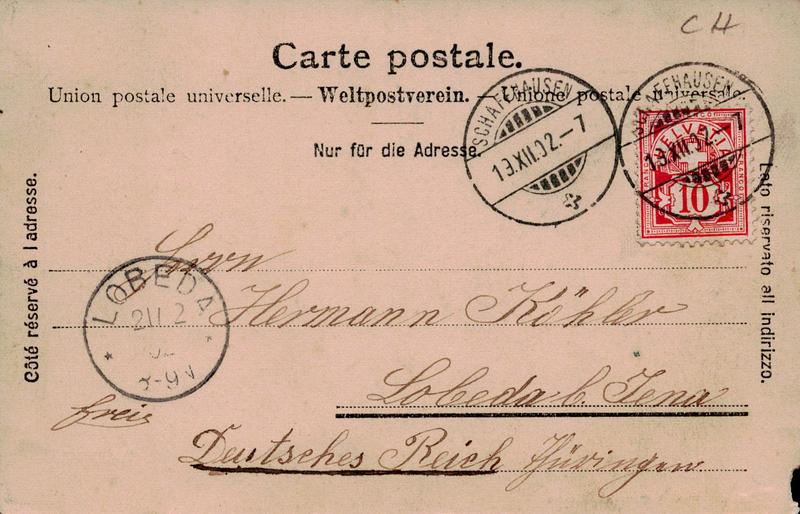 CH
Carte postale.
Union postale universelle. — Weltpostverein. — Unione postale universale.
Nur für die Adresse.
SCHAFFHAUSEN
19.XII.02.–7
SCHAFFHAUSEN
19.XII.02.–7
HELVETIA
10
Côté réservé à l adresse.
Lato riservato all indirizzo.
Herrn
Hermann Köhler
Lobeda b. Jena
Deutsches Reich Thüringen
frei
LOBEDA
8-9V